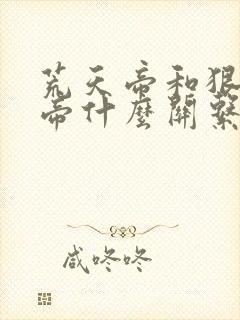 荒天帝和狠
帝什麼關繫
咸咚咚